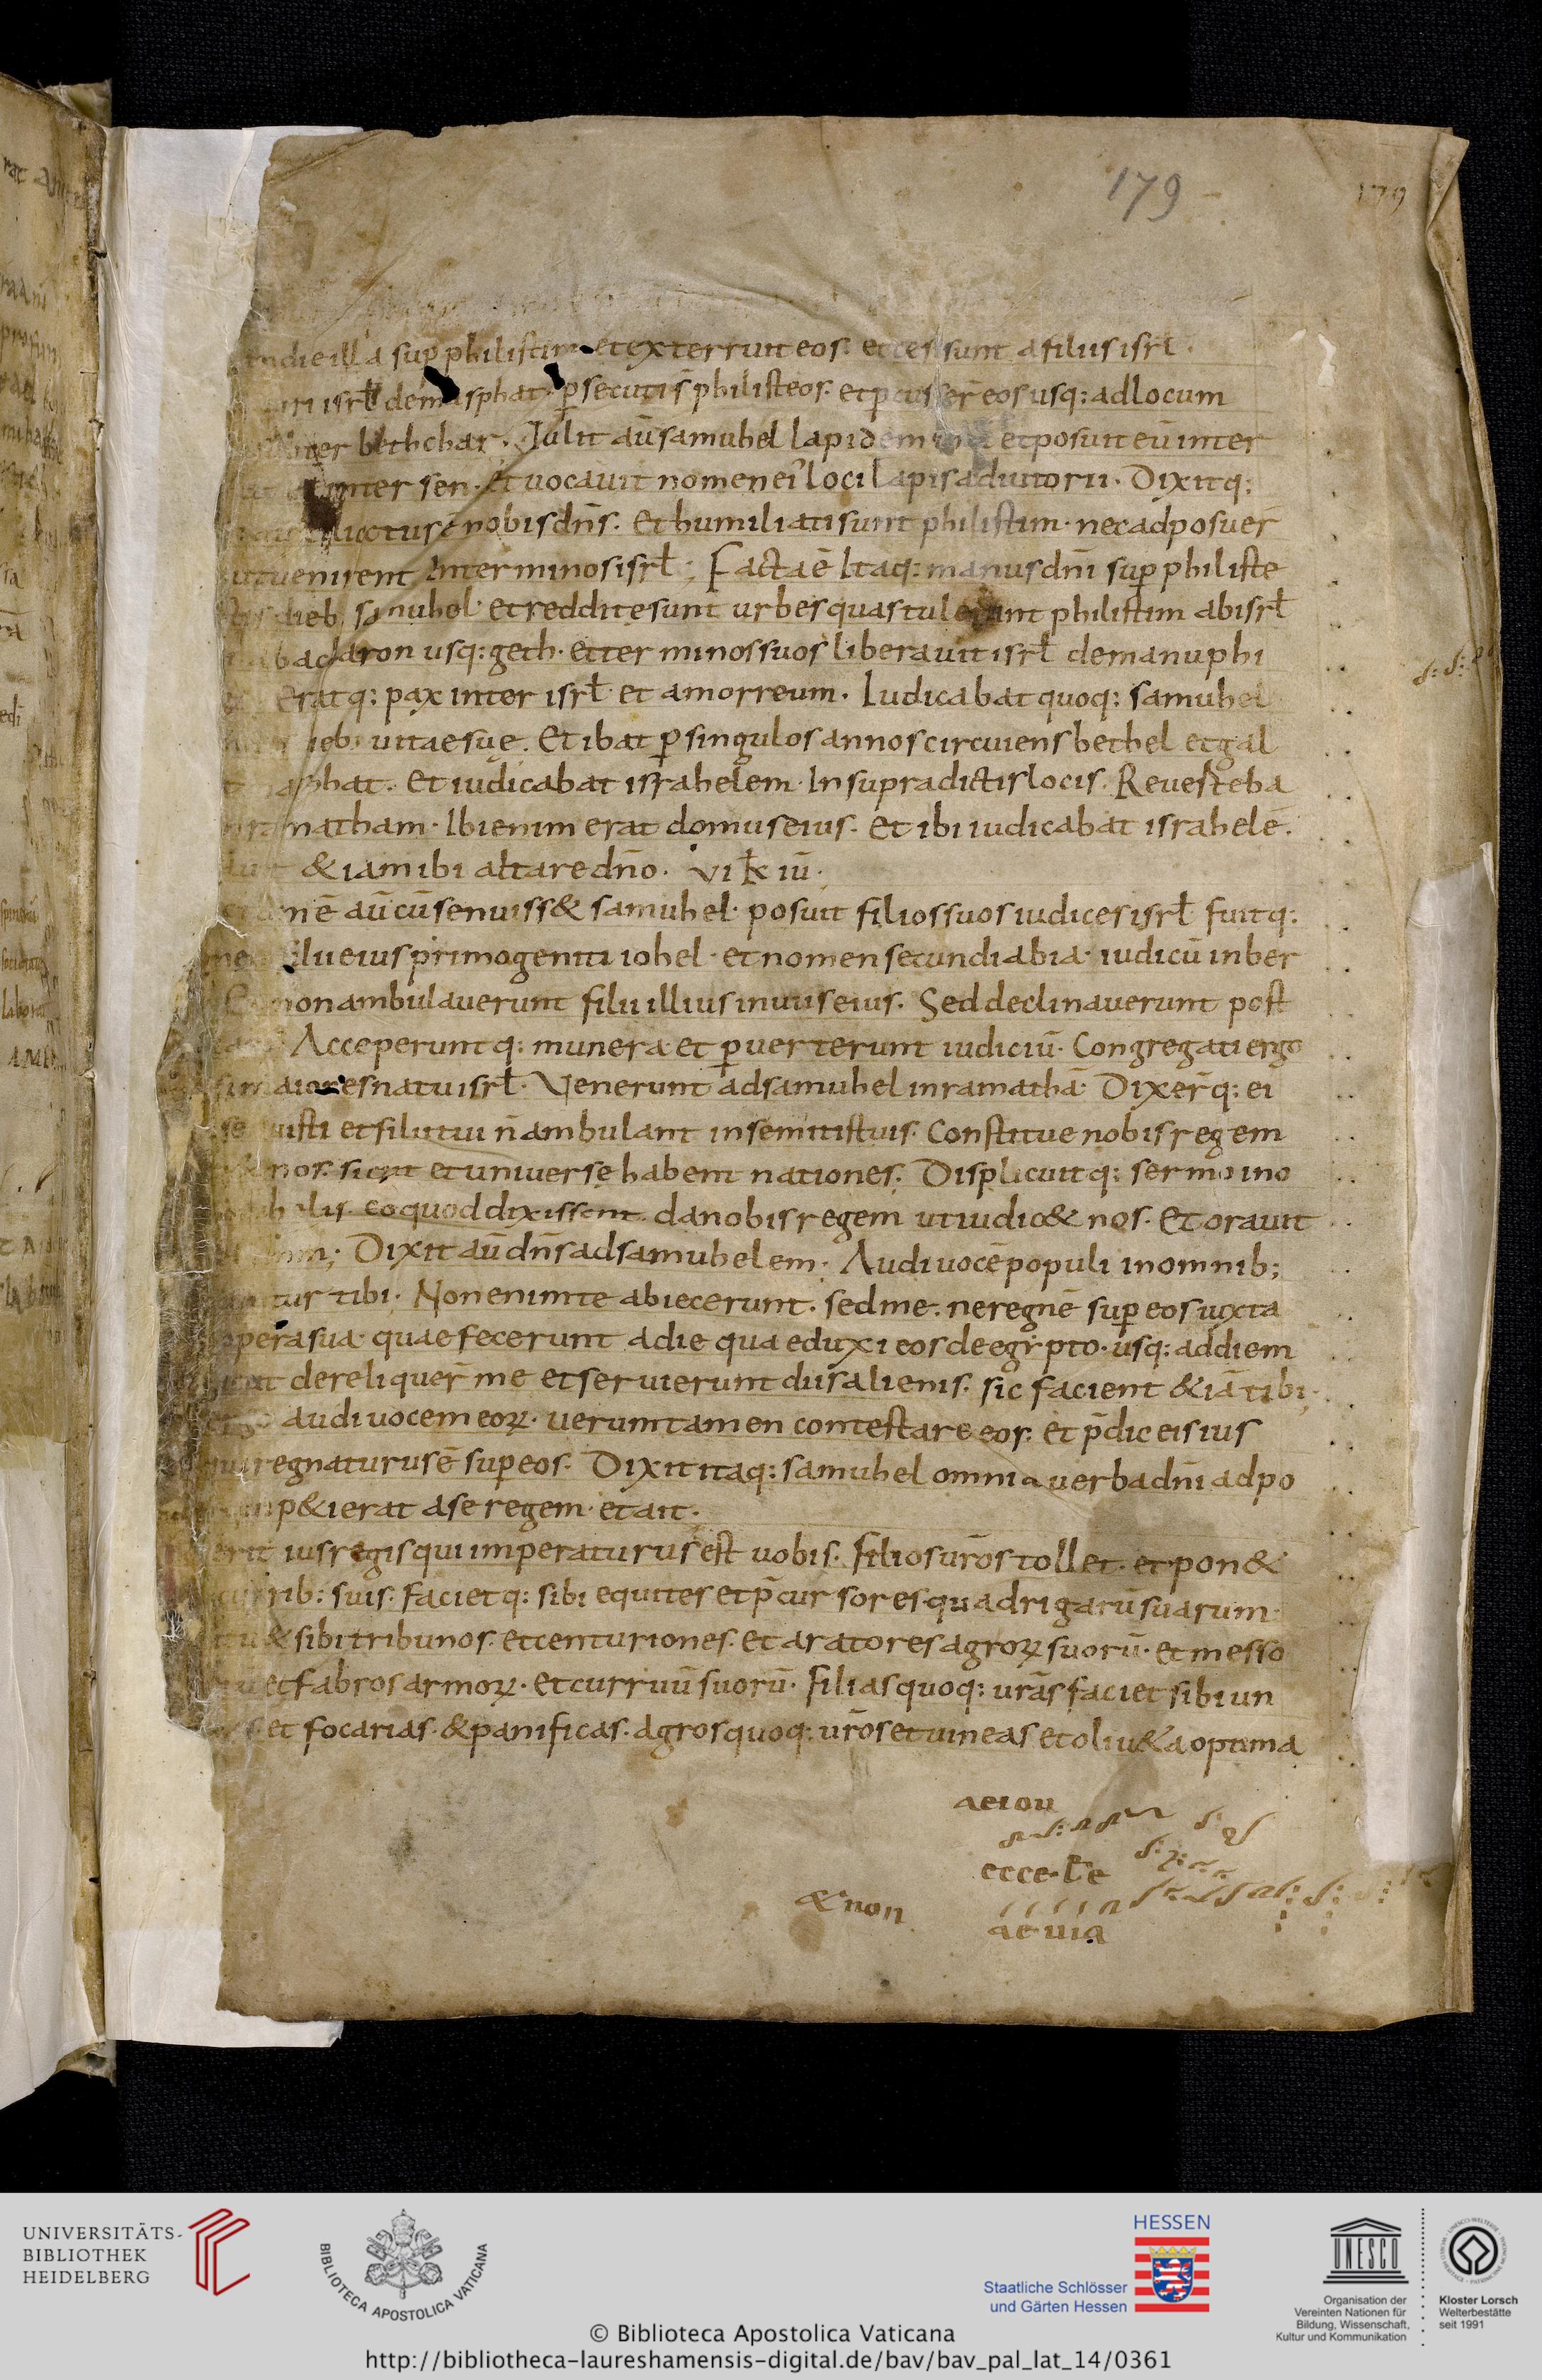 179
179
in die illa sup philistim et exterruit eos. et cesi sunt a filiis isrł.
isrł de masphat. p̄secuti s̄ philisteos. et pcusser̄ eos usq: ad locum
subter bethchar. Tulit aū samuhel lapidem unū et posuit eū inter
inter sen. et uocauit nomen ei' loci lapis adiutorii. Dixitq:
nobis dn̄s. Et humiliati sunt philistim. nec adposuer̄
ut uenirent in terminos isrł; Facta ē Itaq: manus dn̄i sup philiste
dieb; samuhel et reddite sunt urbes quas tulerant philistim ab isrł
ab accaron usq: geth. et terminos suos liberauit isrł de manu phi
Eratq: pax inter isrł et amorreum. Iudicabat quoq: samuhel
dieb; uitae suę. Et ibat p̄ singulos annos circuiens bethel et gal
masphat. Et iudicabat israhelem. In supradictis locis. Reuerteba
ramatham. Ibi enim erat domus eius. Et ibi iudicabat israhelē.
&iam ibi altare dn̄o. vi k̄ iū.
aū cū senuiss& samuhel. posuit filios suos iudices isrł fuitq:
filii eius primogeniti iohel. et nomen secundi abia. iudicū in ber
non ambulauerunt filii illius in uiis eius. Sed declinauerunt post
Acceperuntq: munera et p̄uerterunt iudiciū. Congregati ergo
maiores natu isrł. Venerunt ad samuhel in ramathā. Dixer̄q: ei
senuisti et filii tui n̄ ambulant in semitis tuis. Constitue nobis regem
nos. sicut et uniuersę habent nationes. Displicuitq: sermo in o
samuhelis. eo quod dixissent. da nobis regem ut iudic& nos. Et orauit
Dixit aū dn̄s ad samuhelem. Audi uocē populi in omnib;
tibi. Non enim te abiecerunt. sed me. ne regnē sup eos iuxta
opera sua. quae fecerunt a die qua eduxi eos de egypto. usq: ad diem
dereliquer̄ me et seruierunt diis alienis. sic facient &iā tibi.
ergo audi uocem eoꝝ. uerumtamen contestare eos. et p̄dic eis ius
regnaturus ē sup eos. Dixit itaq: samuhel omnia uerba dn̄i ad po
p&ierat a se regem. et ait.
erit ius regis qui imperaturus est uobis. filios ur̄os tollet. et pon&
currib: suis. facietq: sibi equites et p̄cursores quadrigarū suarum.
& sibi tribunos. et centuriones. et aratores agroꝝ suorū. et messo
et fabros armoꝝ. et curruū suorū. filias quoq: ur̄as faciet sibi un
et focarias. & panificas. agros quoq: ur̄os et uineas et oliu&a optima
aeiou
ecce
& non
aeuia
UNIVERSITÄTS-
BIBLIOTHEK
HEIDELBERG
BIBLIOTECA APOSTOLICA VATICANA
HESSEN
Staatliche Schlösser
und Gärten Hessen
UNESCO
Organisation der
Vereinten Nationen für
Bildung, Wissenschaft,
Kultur und Kommunikation
Kloster Lorsch
Welterbestätte
seit 1991
© Biblioteca Apostolica Vaticana
http://bibliotheca-laureshamensis-digital.de/bav/bav_pal_lat_14/0361